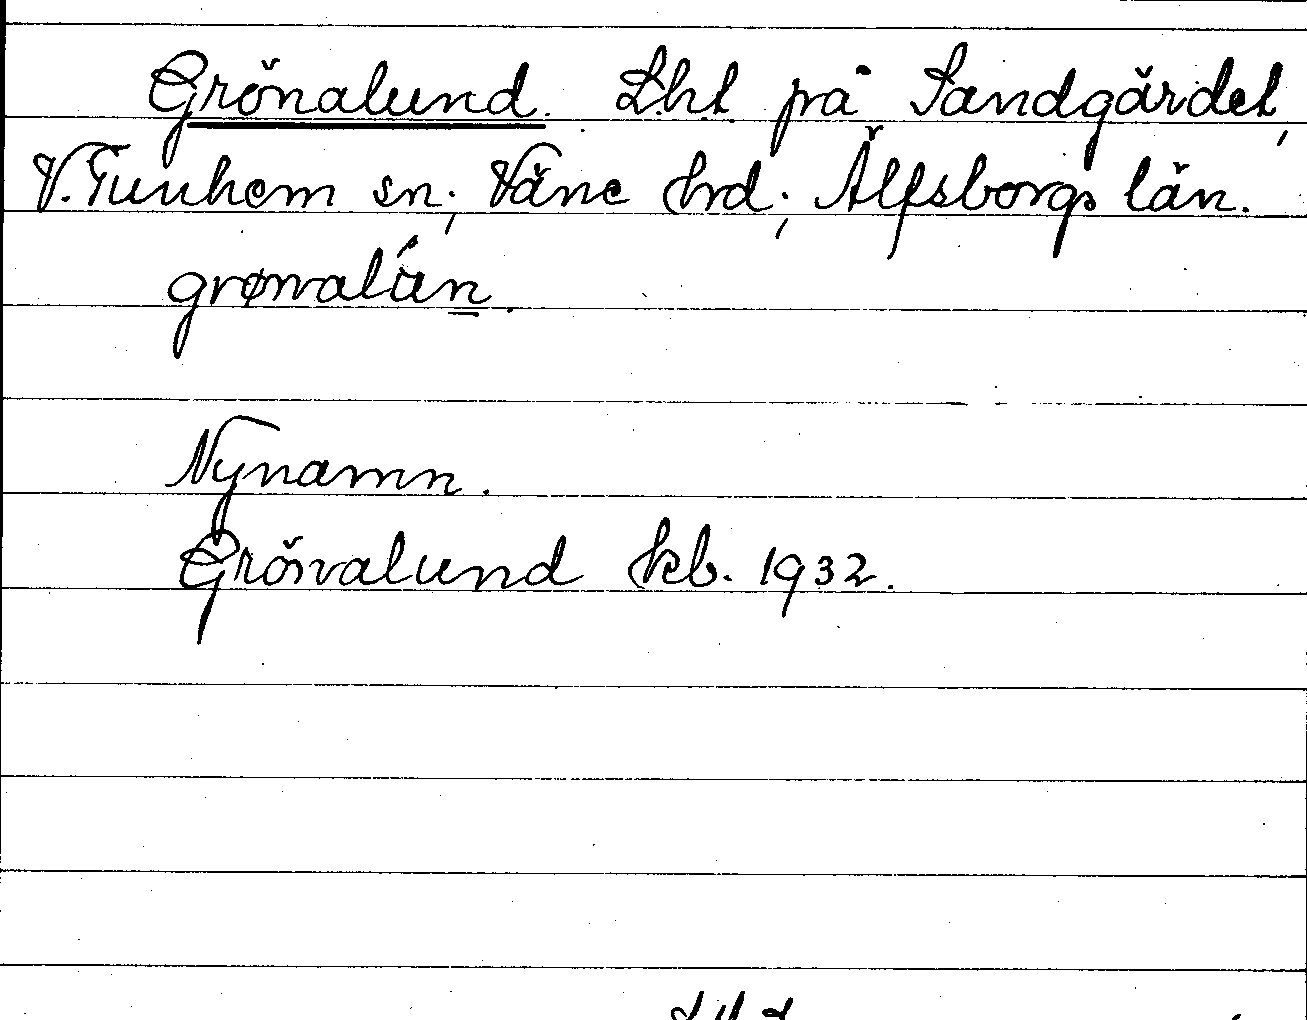 Grönalund. Lht. på Sandgärdet,
V. Tunhem sn; Väne hrd; Älfsborgs län.
Nynamn.
Grönalund kb. 1932.